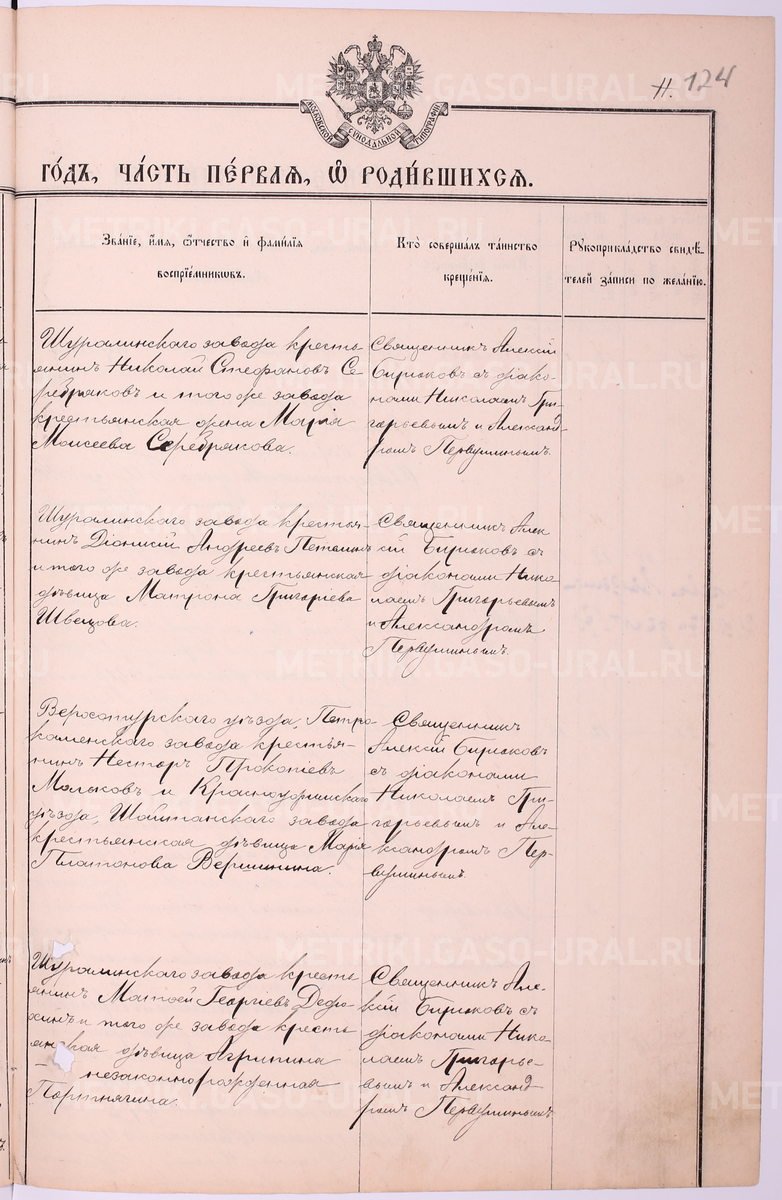 н. 124
МОСКОВСКОЙ СѴНОДАЛЬНОЙ ТИПОГРАФІИ
ГО́ДЪ, ЧА́СТЬ ПЕ́РВАѦ, Ѽ РОДИ́ВШИХСѦ.
Зва́нїе, и҆́мѧ, ѻ҆́тчество и҆ фами́лїѧ
воспрїе́мникѡвъ.
Кто̀ соверша́лъ та́инство
креще́нїѧ.
Рꙋкоприкла́дство свидѣ́-
телей за́писи по жела́нїю.
Шуралинскаго завода кресть-
янинъ Николай Стефановъ Се-
ребряковъ и того же завода
крестьянская жена Марія
Моисеева Серебрякова.
Священникъ Алексій
Бирюковъ съ діако-
нами Николаемъ Гри-
горьевымъ и Александ-
ромъ Первушинымъ.
Шуралинскаго завода крестья-
нинъ Діонисій Андреевъ Петелинъ
и того же завода крестьянская
дѣвица Матрона Григоріева
Швецова.
Священникъ Алек
сій Бирюковъ съ
діаконами Нико
лаемъ Григорьевымъ
и Александромъ
Первушинымъ.
Верхотурскаго уѣзда, Петро-
каменскаго завода крестья-
нинъ Несторъ Прокопіевъ
Мальковъ и Красноуфимскаго
уѣзда, Шайтанскаго завода
крестьянская дѣвица Марія
Платонова Вершинина.
Священникъ
Алексій Бирюковъ
съ діаконами
Николаемъ Гри-
горьевымъ и Але-
ксандромъ Пер-
вушинымъ.
Шуралинскаго завода кресть
янинъ Матѳей Георгіевъ
и того же завода кресть
янская дѣвица Агрипина
незаконнорожденная
Портнягина.
Священникъ Але-
ксій Бирюковъ съ
діаконами Нико
лаемъ Григорье-
вымъ и Александ-
ромъ Первушинымъ.
METRIKI.GASO-URAL.RU